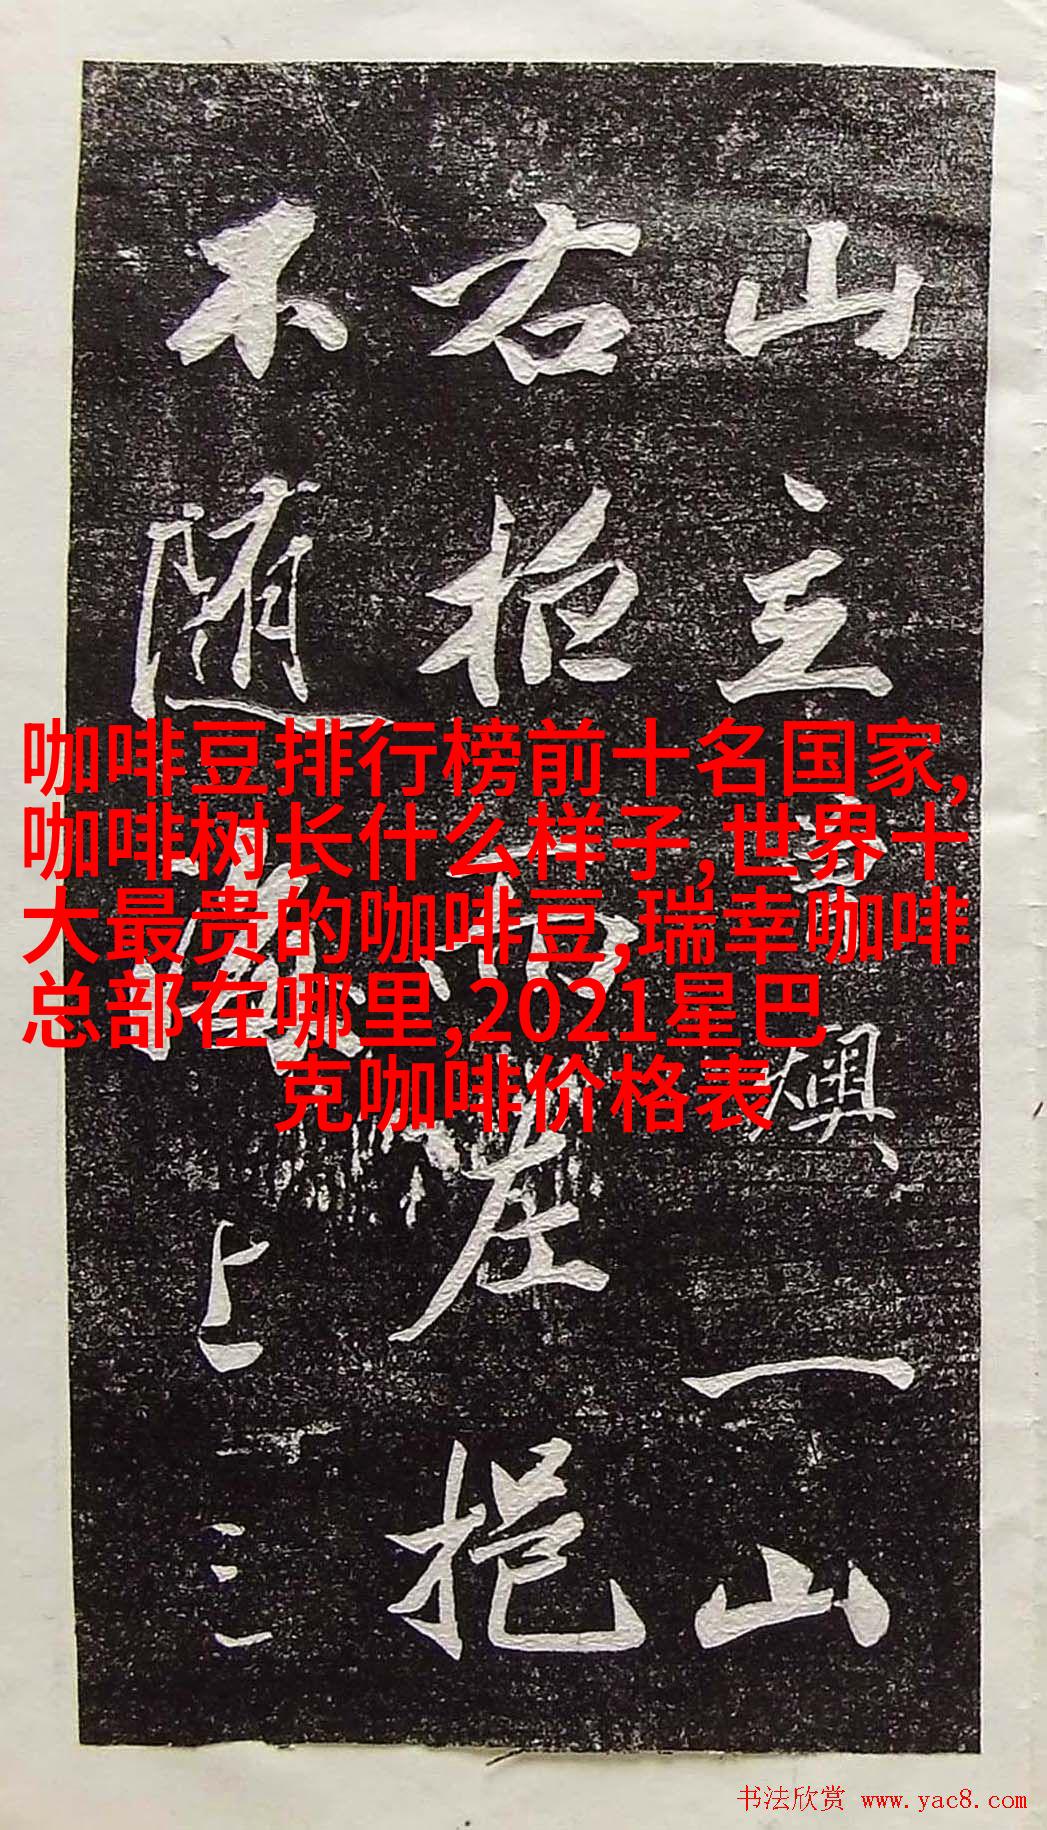 山主一山
右左挹
不随上三
咖啡豆排行榜前十名国家,
咖啡树长什么样子,世界十
大最贵的咖啡豆,瑞幸咖啡
总部在哪里,2021星巴
克咖啡价格表
书法欣赏 www.yac8.com